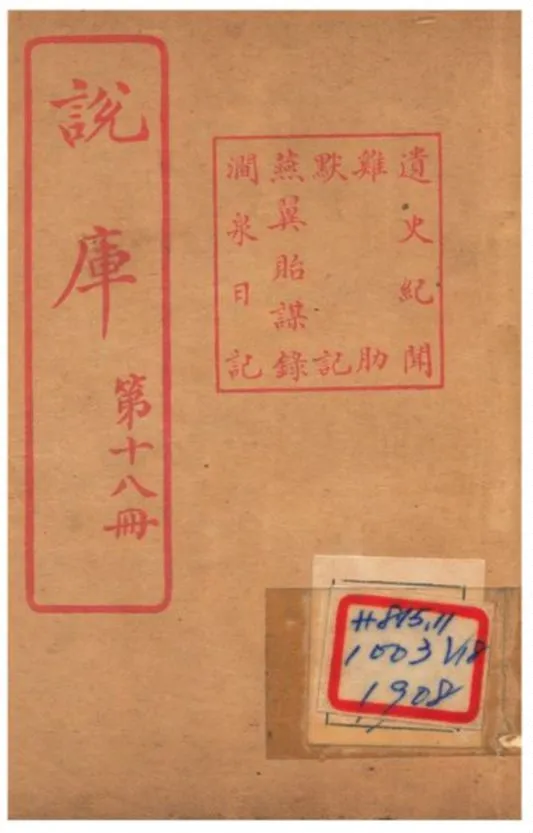 說庫
第十八冊
遺史紀聞
雞肋
默記
燕翼貽謀錄
澗泉日記
1003 V18
1908